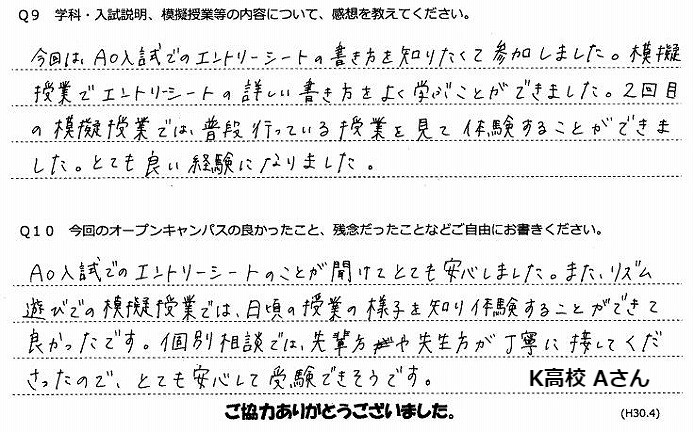 Q9 学科・入試説明、模擬授業等の内容について、感想を教えてください。
今回は、AO入試でのエントリーシートの書き方を知りたくて参加しました。模擬
授業でエントリーシートの詳しい書き方をよく学ぶことができました。2回目
の模擬授業では、普段行っている授業を見て体験することができま
した。とても良い経験になりました。
Q10 今回のオープンキャンパスの良かったこと、残念だったことなどご自由にお書きください。
AO入試でのエントリーシートのことが聞けてとても安心しました。また、リズム
遊びでの模擬授業では、日頃の授業の様子を知り体験することができて
良かったです。個別相談では、先輩方や先生方が丁寧に接してくだ
さったので、とても安心して受験できそうです。
K高校 Aさん
ご協力ありがとうございました。
(H30.4)